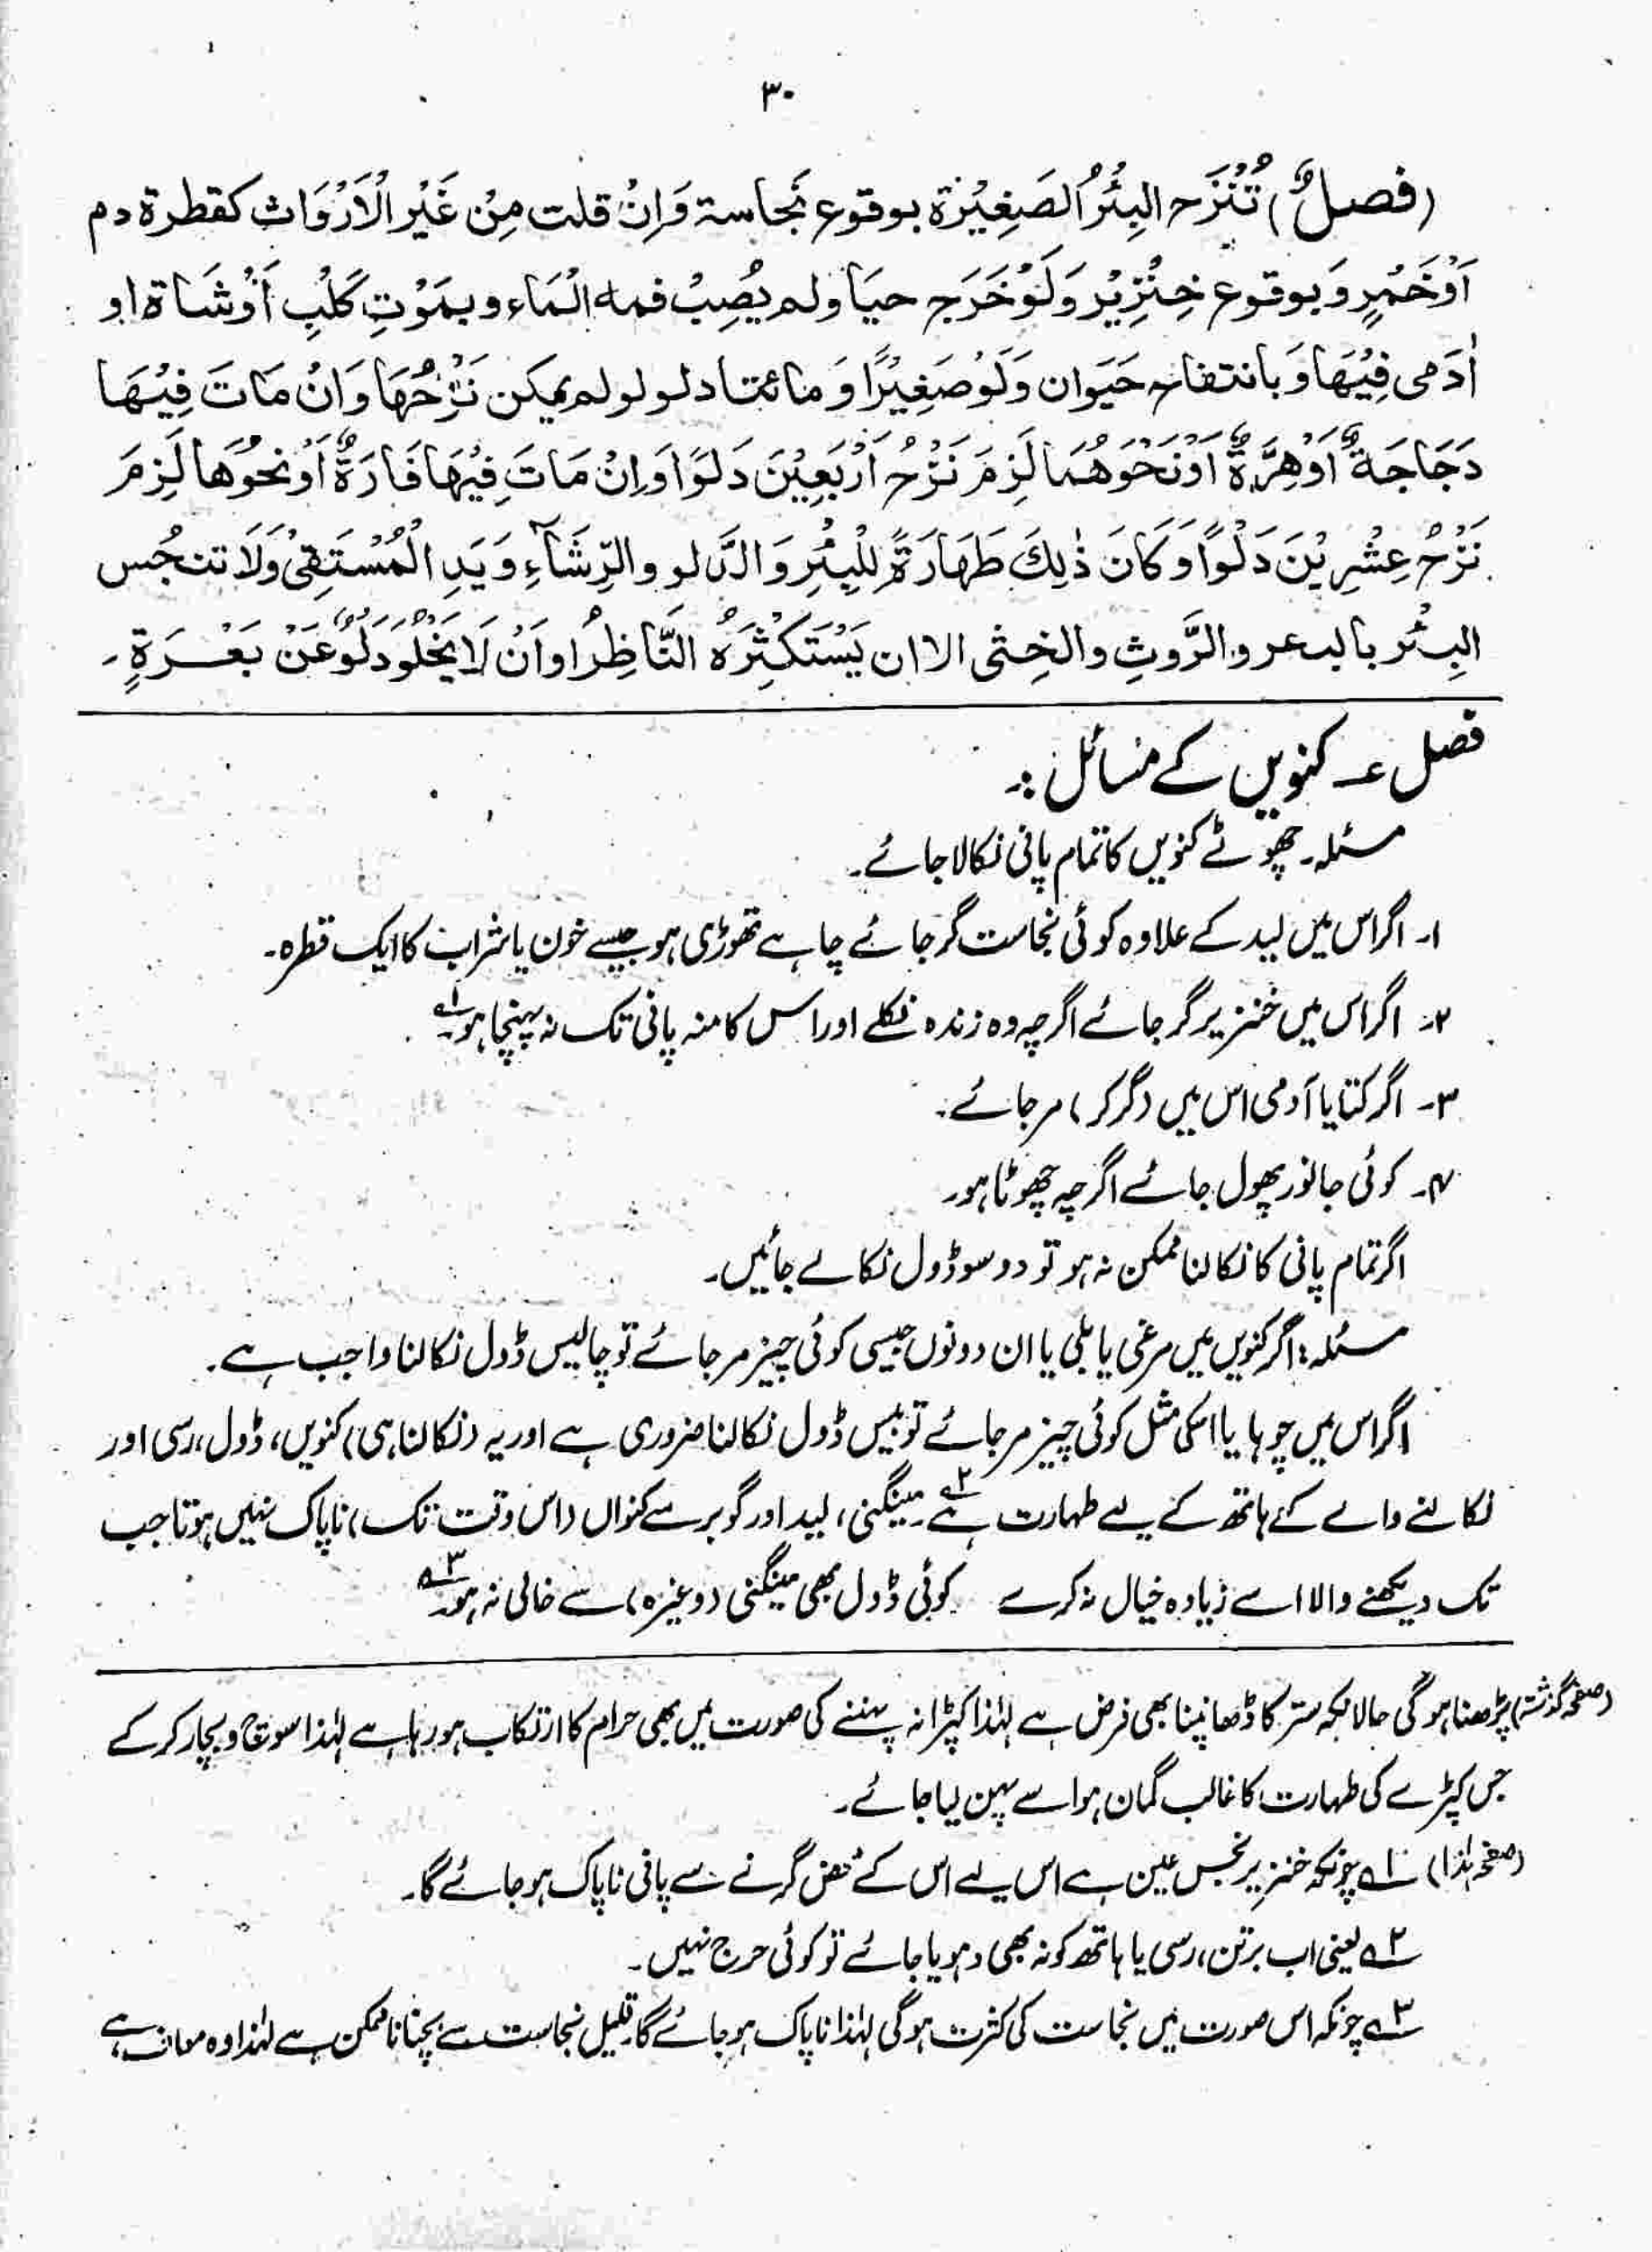 ۳۰
(فصلٌ) تُنْزَح البِئْرُ الصَغِيْرَة بوقوع نجاسة وَاِنْ قلت مِنْ غَيْرِ الْاَرْوَاث كقطرة دم
اَوْخَمْرٍ وَبوقوع خِنْزِيْر وَلَوْخَرَج حيَا ولم يُصِبْ فمه الْمَاء و بمَوْتِ كَلْبٍ اَوْشَاة او
اٰدَمى فِيْهَا وَ بانتفاخ حَيَوان وَلَوْصَغِيْرًا وَ مائتا دلو لو لم يمكن نَزْحُهَا وَاِنْ مَاتَ فِيْهَا
دَجَاجَةٌ اَوْهِرَّةٌ اَوْنَحْوَهُمَا لَزِمَ نَزْحُ اَرْبَعِيْنَ دَلوًا وَاِنْ مَاتَ فِيْهَا فَارَةٌ اَوْنحوُهَا لَزِمَ
نَزْحُ عِشْرِيْنَ دَلْوًا وَكَانَ ذٰلِكَ طَهَارَةً لِلْبِئْرِ وَالدَّلو والرِّشَآءِ وَيَدِ الْمُسْتَقِىْ وَلَا تنجُس
البِئْر بالبعر والرَّوثِ والخِثى الا ان يَسْتَكْثِرَهُ النَّاظِرُ اواَنْ لَا يَخْلُوَدَلْوٌعَنْ بَعْرَةٍ ۔
فصل ؏ کنویں کے مسائل :۔
مسئلہ۔ چھوٹے کنویں کا تمام پانی نکالا جائے۔
۱۔ اگر اس میں لید کے علاوہ کوئی نجاست گر جائے چاہے تھوڑی ہو جیسے خون یا شراب کا ایک قطرہ۔
۲۔ اگر اس میں خنزیر گر جائے اگرچہ وہ زندہ نکلے اور اس کا منہ پانی تک نہ پہنچا ہو۔ ۱ے
۳۔ اگر کتا یا آدمی اس میں (گر کر) مر جائے۔
۴۔ کوئی جانور پھول جائے اگرچہ چھوٹا ہو۔
اگر تمام پانی کا نکالنا ممکن نہ ہو تو دو سو ڈول نکالے جائیں۔
مسئلہ: اگر کنویں میں مرغی یا بلی یا ان دونوں جیسی کوئی چیز مر جائے تو چالیس ڈول نکالنا واجب ہے۔
اگر اس میں چوہا یا اسکی مثل کوئی چیز مر جائے تو بیس ڈول نکالنا ضروری ہے اور یہ (نکالنا ہی) کنویں، ڈول، رسی اور
نکالنے والے کے ہاتھ کے لیے طہارت ہے۔ ۲ے مینگنی، لید اور گوبر سے کنواں (اس وقت تک) ناپاک نہیں ہوتا جب
تک دیکھنے والا اسے زیادہ خیال نہ کرے کوئی ڈول بھی مینگنی (وغیرہ) سے خالی نہ ہو۔ ۳ے
(صفحہ گذشتہ) پڑھنا ہوگی حالانکہ ستر کا ڈھانپنا بھی فرض ہے لہٰذا کپڑا نہ پہننے کی صورت میں بھی حرام کا ارتکاب ہو رہا ہے لہٰذا سوچ و بچار کر کے
جس کپڑے کی طہارت کا غالب گمان ہو اسے پہن لیا جائے۔
(صفحہ ہٰذا) ۱ے چونکہ خنزیر نجس عین ہے اس لیے اس کے محض گرنے سے پانی ناپاک ہو جائے گا۔
۲ے یعنی اب برتن، رسی یا ہاتھ کو نہ بھی دھویا جائے تو کوئی حرج نہیں۔
۳ے چونکہ اس صورت میں نجاست کی کثرت ہوگی لہٰذا ناپاک ہو جائے گا۔ قلیل نجاست سے بچنا ناممکن ہے لہٰذا وہ معاف ہے